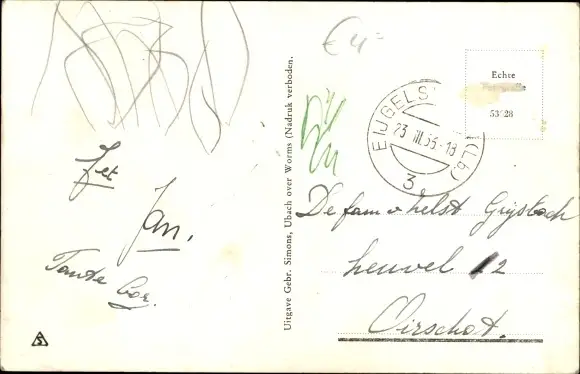 € 4=
Echte
53728
EIJGELS (Lb)
23 III 53 - 18
3
Jet
Jan.
Tante Cor.
Uitgave Gebr. Simons, Ubach over Worms (Nadruk verboden.
De fam v helst
heuvel 12
Oirschot.
S